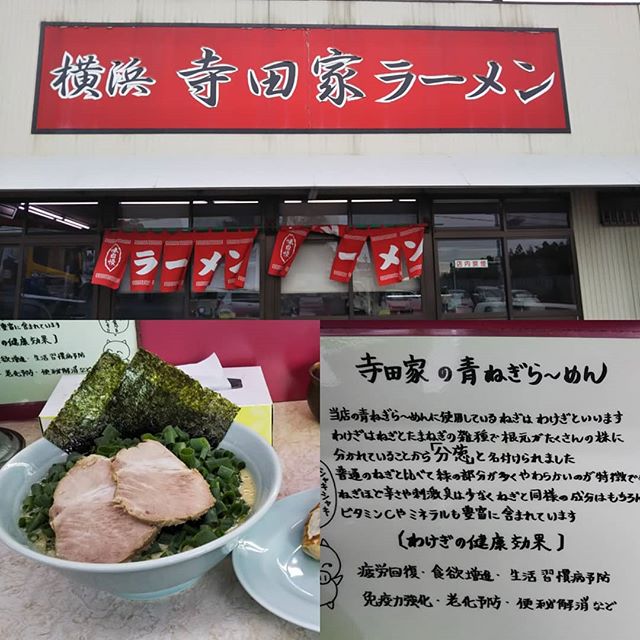 横浜 寺田家ラーメン
味自慢
ラーメン
味自慢
ーメン
店内禁煙
豊富に含まれています
の健康効果〕
欲増進・生活習慣病予防
・老化予防・便秘解消など
寺田家の青ねぎら〜めん
当店の青ねぎら〜めんに使用しているねぎは わけぎといいます
わけぎはねぎとたまねぎの雑種で根元がたくさんの株に
分かれていることから「分葱」と名付けられました
普通のねぎと比べて緑の部分が多くやわらかいのが特徴で
ねぎほど辛さや刺激臭は少なくねぎと同様の成分はもちろん
ビタミンCやミネラルも豊富に含まれています
シャキシャキ
〔わけぎの健康効果〕
疲労回復・食欲増進・生活習慣病予防
免疫力強化・老化予防・便秘解消など